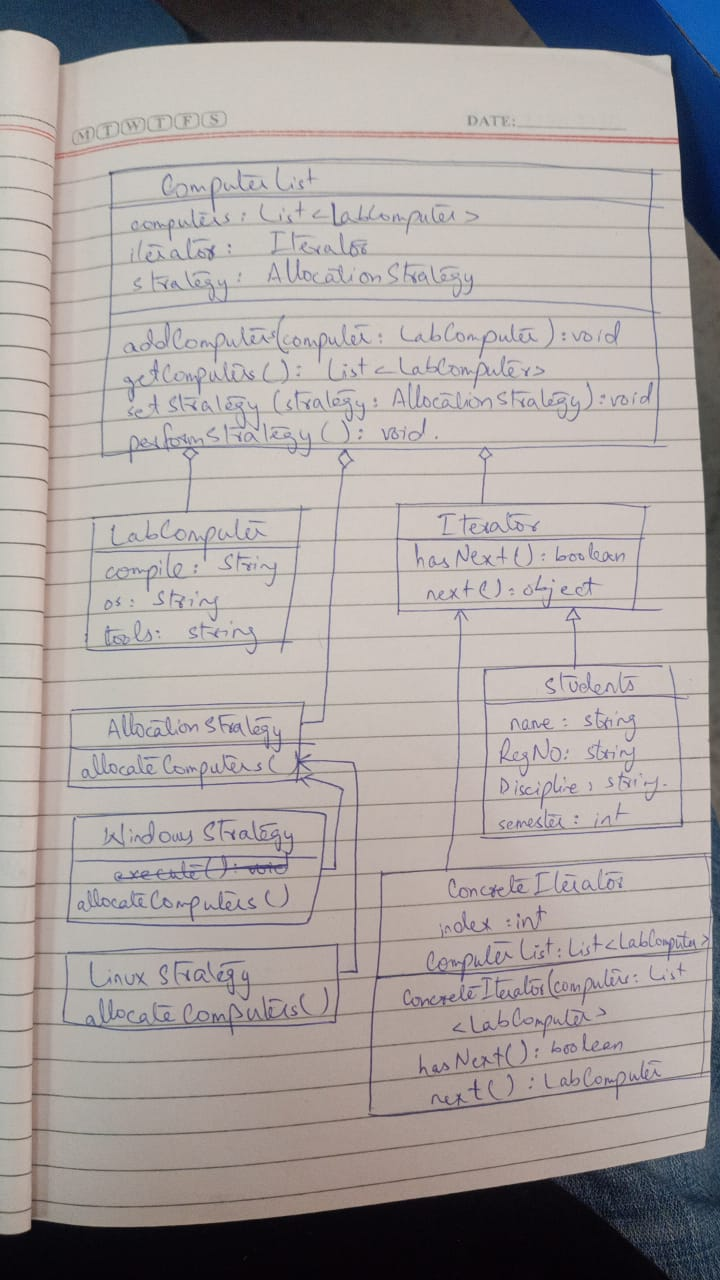 M T W T F S
DATE:
ComputerList
computers: List<LabComputer>
iterator: Iterator
strategy: AllocationStrategy
addComputers(computer: LabComputer): void
getComputers(): List<LabComputer>
setStrategy (strategy: AllocationStrategy): void
performStrategy(): void.
LabComputer
compile: String
os: String
tools: string
Iterator
hasNext(): boolean
next(): object
Students
name: string
RegNo: string
Discipline: string.
semester: int
AllocationStrategy
allocateComputers()
Windows Strategy
execute(): void
allocateComputers()
Linux Strategy
allocateComputers()
ConcreteIterator
index: int
ComputerList: List<LabComputer>
ConcreteIterator(computers: List
<LabComputer>
hasNext(): boolean
next(): LabComputer